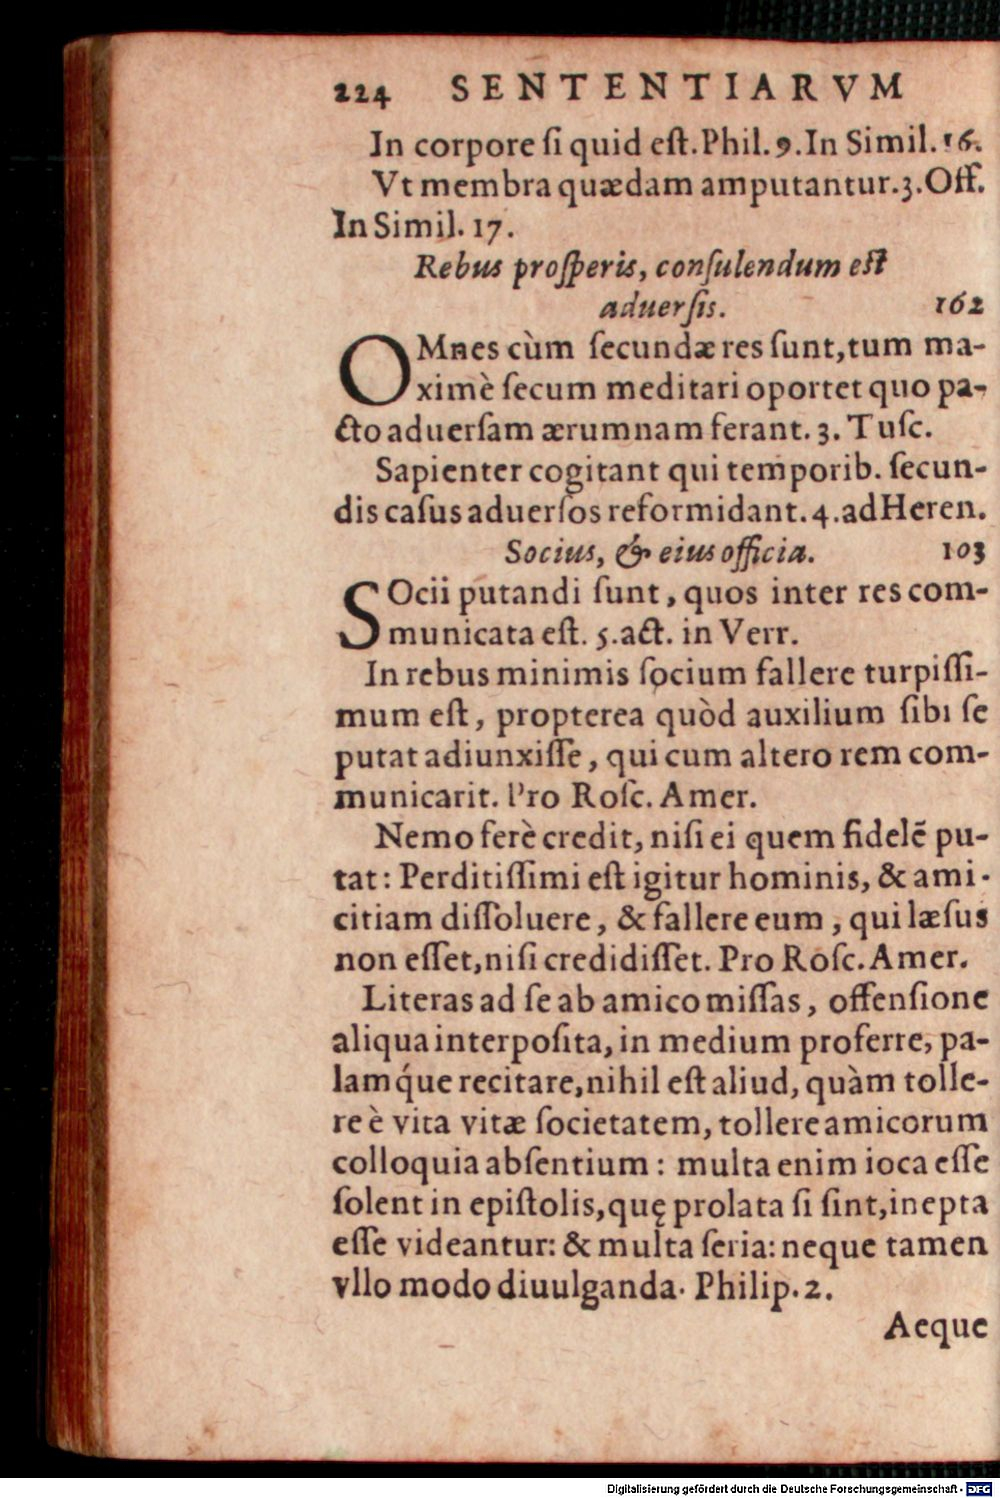 224 SENTENTIARVM
In corpore ſi quid eſt. Phil. 9. In Simil. 16.
Vt membra quædam amputantur. 3. Off.
In Simil. 17.
Rebus proſperis, conſulendum eſt
aduerſis. 162
OMnes cùm ſecundæ res ſunt, tum ma-
ximè ſecum meditari oportet quo pa-
cto aduerſam ærumnam ferant. 3. Tuſc.
Sapienter cogitant qui temporib. ſecun-
dis caſus aduerſos reformidant. 4. ad Heren.
Socius, & eius officia. 103
SOcii putandi ſunt, quos inter res com-
municata eſt. 5. act. in Verr.
In rebus minimis ſocium fallere turpiſſi-
mum eſt, propterea quòd auxilium ſibi ſe
putat adiunxiſſe, qui cum altero rem com-
municarit. Pro Roſc. Amer.
Nemo ferè credit, niſi ei quem fidelē pu-
tat: Perditiſſimi eſt igitur hominis, & ami-
citiam diſſoluere, & fallere eum, qui læſus
non eſſet, niſi credidiſſet. Pro Roſc. Amer.
Literas ad ſe ab amico miſſas, offenſione
aliqua interpoſita, in medium proferre, pa-
lamq́ue recitare, nihil eſt aliud, quàm tolle-
re è vita vitæ ſocietatem, tollere amicorum
colloquia abſentium: multa enim ioca eſſe
ſolent in epiſtolis, quę prolata ſi ſint, inepta
eſſe videantur: & multa ſeria: neque tamen
vllo modo diuulganda. Philip. 2.
Aeque
Digitalisierung gefördert durch die Deutsche Forschungsgemeinschaft - DFG